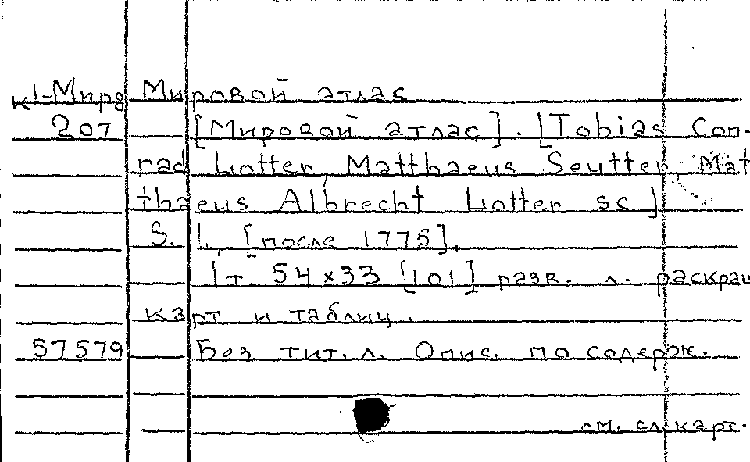 К1-Мира Мировой атлас
207 [Мировой атлас]. [Tobias Con-
rad Lotter, Matthaeus Seutter, Mat
thaeus Albrecht Lotter sc]
S. l., [после 1775].
1 т. 54x33 [101] разв. л. раскраш
карт и таблиц.
57579 Без тит. л. Опис. по содерж.
см. сл. карт.